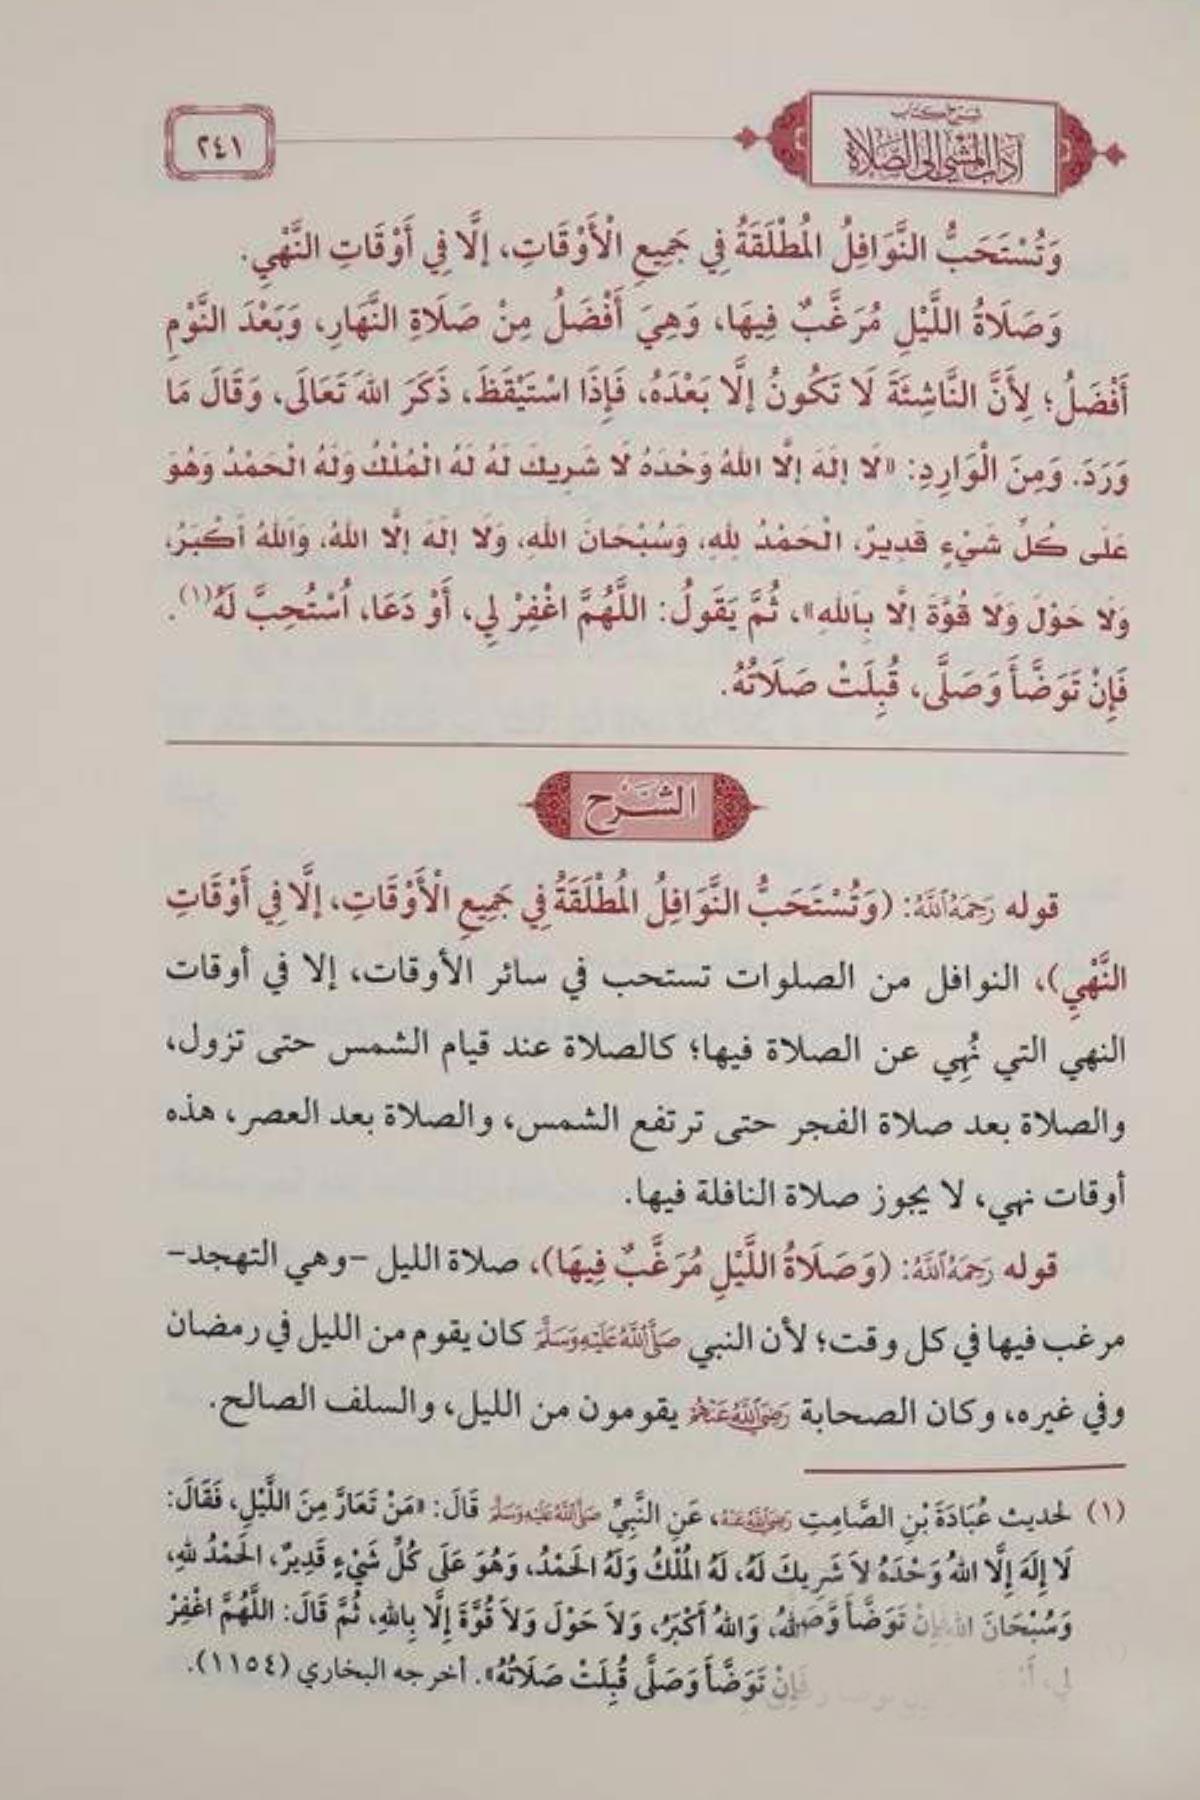 شرح كتاب
آداب المشي إلى الصلاة
٢٤١
وَتُسْتَحَبُّ النَّوَافِلُ الْمُطْلَقَةُ فِي جَمِيعِ الْأَوْقَاتِ، إِلَّا فِي أَوْقَاتِ النَّهْيِ.
وَصَلَاةُ اللَّيْلِ مُرَغَّبٌ فِيهَا، وَهِيَ أَفْضَلُ مِنْ صَلَاةِ النَّهَارِ، وَبَعْدَ النَّوْمِ
أَفْضَلُ؛ لِأَنَّ النَّاشِئَةَ لَا تَكُونُ إِلَّا بَعْدَهُ، فَإِذَا اسْتَيْقَظَ، ذَكَرَ اللهَ تَعَالَى، وَقَالَ مَا
وَرَدَ. وَمِنَ الْوَارِدِ: «لَا إِلَهَ إِلَّا اللهُ وَحْدَهُ لَا شَرِيكَ لَهُ لَهُ الْمُلْكُ وَلَهُ الْحَمْدُ وَهُوَ
عَلَى كُلِّ شَيْءٍ قَدِيرٌ، الْحَمْدُ لِلهِ، وَسُبْحَانَ اللهِ، وَلَا إِلَهَ إِلَّا اللهُ، وَاللهُ أَكْبَرُ،
وَلَا حَوْلَ وَلَا قُوَّةَ إِلَّا بِاللهِ»، ثُمَّ يَقُولُ: اللَّهُمَّ اغْفِرْ لِي، أَوْ دَعَا، اُسْتُحِبَّ لَهُ(١).
فَإِنْ تَوَضَّأَ وَصَلَّى، قُبِلَتْ صَلَاتُهُ.
الشرح
قوله رَحِمَهُ ٱللَّهُ: (وَتُسْتَحَبُّ النَّوَافِلُ الْمُطْلَقَةُ فِي جَمِيعِ الْأَوْقَاتِ، إِلَّا فِي أَوْقَاتِ
النَّهْيِ)، النوافل من الصلوات تستحب في سائر الأوقات، إلا في أوقات
النهي التي نُهِي عن الصلاة فيها؛ كالصلاة عند قيام الشمس حتى تزول،
والصلاة بعد صلاة الفجر حتى ترتفع الشمس، والصلاة بعد العصر، هذه
أوقات نهي، لا يجوز صلاة النافلة فيها.
قوله رَحِمَهُ ٱللَّهُ: (وَصَلَاةُ اللَّيْلِ مُرَغَّبٌ فِيهَا)، صلاة الليل -وهي التهجد-
مرغب فيها في كل وقت؛ لأن النبي صَلَّى ٱللَّهُ عَلَيْهِ وَسَلَّمَ كان يقوم من الليل في رمضان
وفي غيره، وكان الصحابة رَضِيَ ٱللَّهُ عَنْهُمْ يقومون من الليل، والسلف الصالح.
(١) لحديث عُبَادَةَ بْنِ الصَّامِتِ رَضِيَ ٱللَّهُ عَنْهُ، عَنِ النَّبِيِّ صَلَّى ٱللَّهُ عَلَيْهِ وَسَلَّمَ قَالَ: «مَنْ تَعَارَّ مِنَ اللَّيْلِ، فَقَالَ:
لَا إِلَهَ إِلَّا اللهُ وَحْدَهُ لاَ شَرِيكَ لَهُ، لَهُ الْمُلْكُ وَلَهُ الْحَمْدُ، وَهُوَ عَلَى كُلِّ شَيْءٍ قَدِيرٌ، الْحَمْدُ للهِ،
وَسُبْحَانَ اللهِ إِنْ تَوَضَّأَ وَصَ اللهُ، وَاللهُ أَكْبَرُ، وَلاَ حَوْلَ وَلاَ قُوَّةَ إِلَّا بِاللهِ، ثُمَّ قَالَ: اللَّهُمَّ اغْفِرْ
لِي، فَإِنْ تَوَضَّأَ وَصَلَّى قُبِلَتْ صَلَاتُهُ». أخرجه البخاري (١١٥٤).